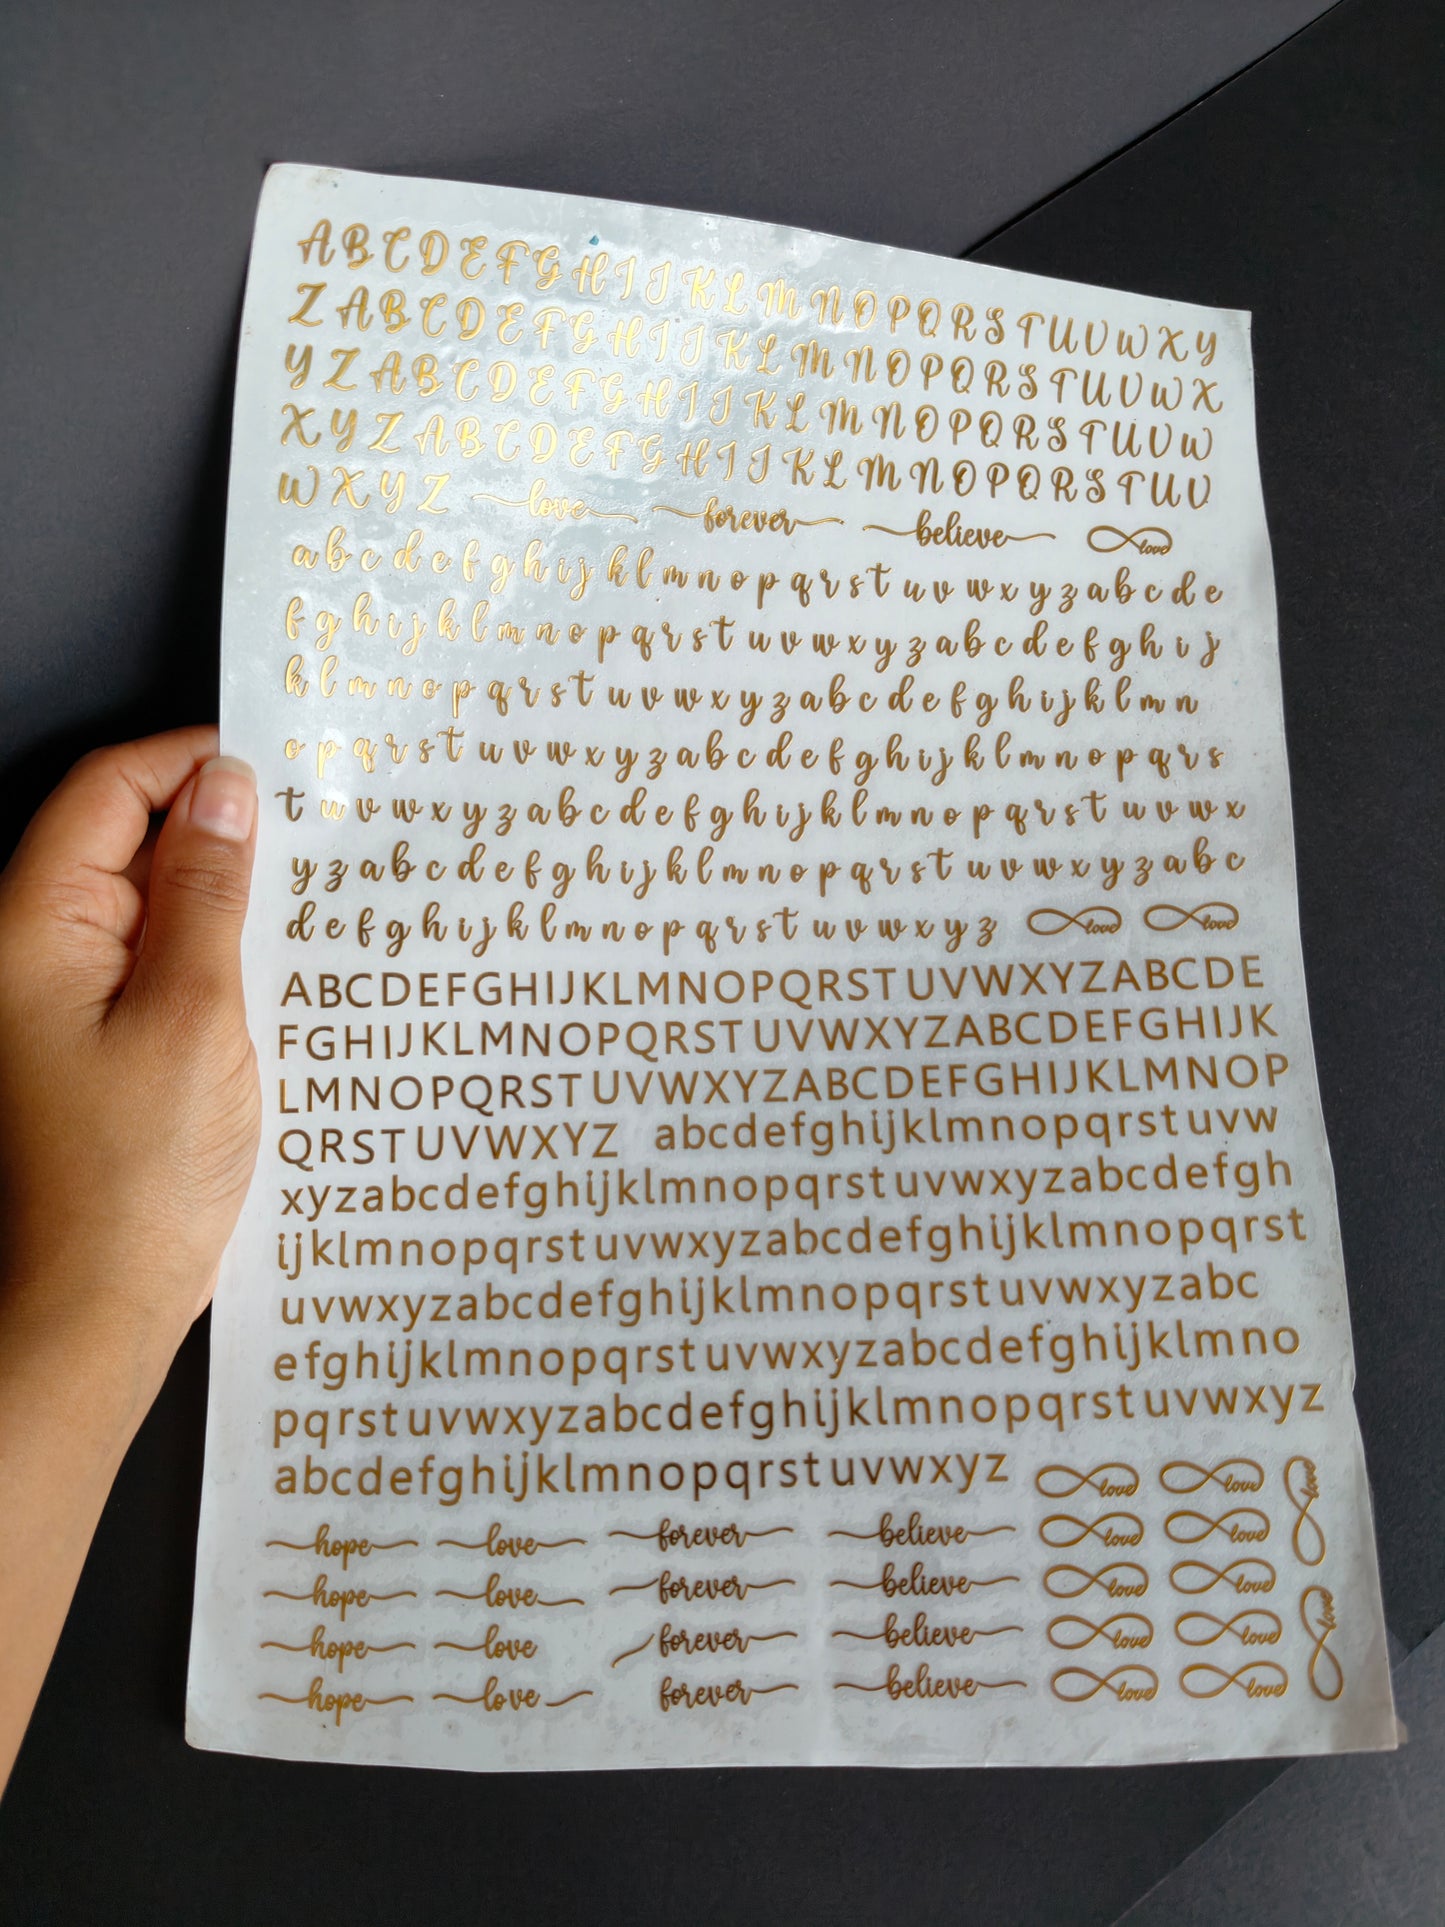 A B C D E F G H I J K L M N O P Q R S T U V W X Y
Z A B C D E F G H I J K L M N O P Q R S T U V W X
Y Z A B C D E F G H I J K L M N O P Q R S T U V W
X Y Z A B C D E F G H I J K L M N O P Q R S T U V
W X Y Z love forever believe love
a b c d e f g h i j k l m n o p q r s t u v w x y z a b c d e
f g h i j k l m n o p q r s t u v w x y z a b c d e f g h i j
k l m n o p q r s t u v w x y z a b c d e f g h i j k l m n
o p q r s t u v w x y z a b c d e f g h i j k l m n o p q r s
t u v w x y z a b c d e f g h i j k l m n o p q r s t u v w x
y z a b c d e f g h i j k l m n o p q r s t u v w x y z a b c
d e f g h i j k l m n o p q r s t u v w x y z love love
ABCDEFGHIJKLMNOPQRSTUVWXYZABCDE
FGHIJKLMNOPQRSTUVWXYZABCDEFGHIJK
LMNOPQRSTUVWXYZABCDEFGHIJKLMNOP
QRSTUVWXYZ abcdefghijklmnopqrstuvw
xyzabcdefghijklmnopqrstuvwxyzabcdefgh
ijklmnopqrstuvwxyzabcdefghijklmnopqrst
uvwxyzabcdefghijklmnopqrstuvwxyzabc
efghijklmnopqrstuvwxyzabcdefghijklmno
pqrstuvwxyzabcdefghijklmnopqrstuvwxyz
abcdefghijklmnopqrstuvwxyz love love love
hope love forever believe love love
hope love forever believe love love love
hope love forever believe love love
hope love forever believe love love